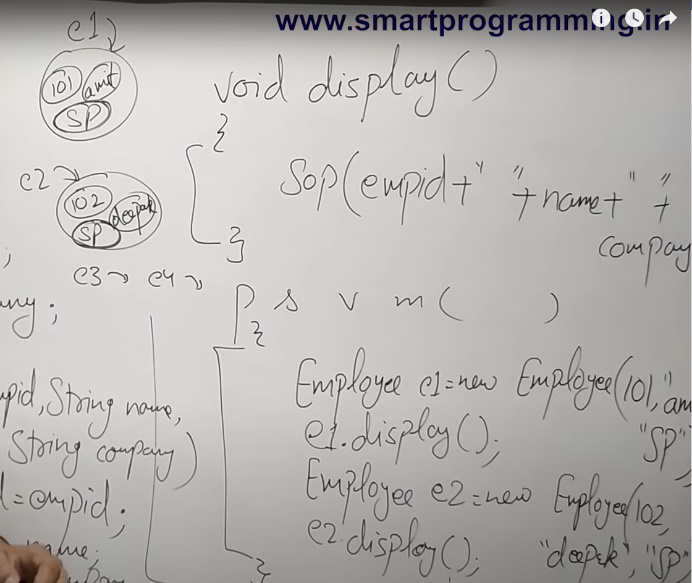 www.smartprogramming.in
e1
101 amit
SP
e2
102 deepak
SP
e3 e4
;
any;
pid, String name,
String company)
d = empid;
name;
void display()
{
Sop(empid+" "+name+" "+
compay
}
p s v m ( )
{
Employee e1=new Employee(101,"am
"SP",
e1.display();
Employee e2=new Employee(102,
"deepak","SP"
e2.display();
}